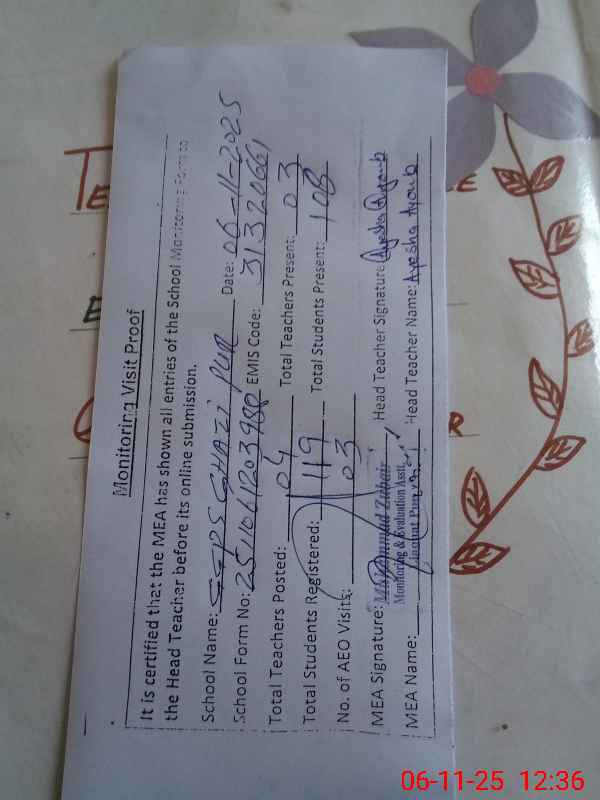 Monitoring Visit Proof
It is certified that the MEA has shown all entries of the School Monitoring Form to
the Head Teacher before its online submission.
School Name: GGPS GHAZI PUR Date: 06-11-2025
School Form No: 2511061203980 EMIS Code: 31320661
Total Teachers Posted: 04 Total Teachers Present: 03
Total Students Registered: 119 Total Students Present: 108
No. of AEO Visits: 03
MEA Signature: Muhammad Zubair Head Teacher Signature: Ayesha Ayoub
Monitoring & Evaluation Asstt.
MEA Name: Head Teacher Name: Ayesha Ayoub
06-11-25 12:36